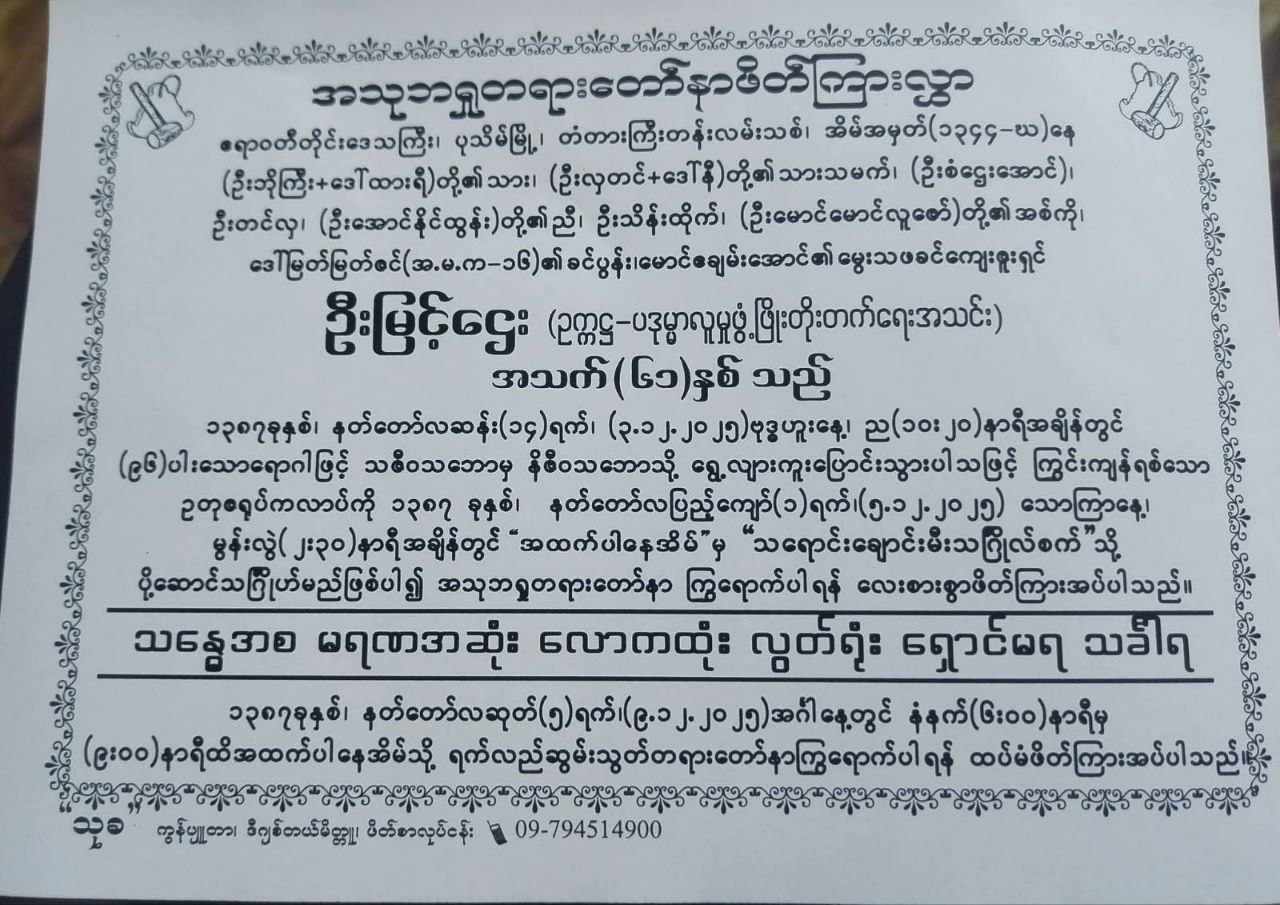 အသုဘရှုတရားတော်နာဖိတ်ကြားလွှာ
ဧရာဝတီတိုင်းဒေသကြီး၊ ပုသိမ်မြို့၊ တံတားကြီးတန်းလမ်းသစ်၊ အိမ်အမှတ်(၁၃၄၄-ဃ)နေ
(ဦးဘိုကြီး+ဒေါ်ထားရီ)တို့၏သား၊ (ဦးလှတင်+ဒေါ်နီ)တို့၏သားသမက်၊ (ဦးစံဌေးအောင်)၊
ဦးတင်လှ၊ (ဦးအောင်နိုင်ထွန်း)တို့၏ညီ၊ ဦးသိန်းထိုက်၊ (ဦးမောင်မောင်လူဇော်)တို့၏အစ်ကို၊
ဒေါ်မြတ်မြတ်ဇင်(အ.မ.က-၁၆)၏ခင်ပွန်း၊မောင်ချမ်းအောင်၏မွေးသဖခင်ကျေးဇူးရှင်
ဦးမြင့်ဌေး (ဥက္ကဋ္ဌ-ပဒုမ္မာလူမှုဖွံ့ဖြိုးတိုးတက်ရေးအသင်း)
အသက်(၆၁)နှစ် သည်
၁၃၈၇ခုနှစ်၊ နတ်တော်လဆန်း(၁၄)ရက်၊ (၃.၁၂.၂၀၂၅)ဗုဒ္ဓဟူးနေ့၊ ည(၁၀း၂၀)နာရီအချိန်တွင်
(၉၆)ပါးသောရောဂါဖြင့် သဇီဝသဘောမှ နိဇီဝသဘောသို့ ရွေ့လျားကူးပြောင်းသွားပါသဖြင့် ကြွင်းကျန်ရစ်သော
ဥတုဇရုပ်ကလာပ်ကို ၁၃၈၇ ခုနှစ်၊ နတ်တော်လပြည့်ကျော်(၁)ရက်၊(၅.၁၂.၂၀၂၅) သောကြာနေ့၊
မွန်းလွဲ(၂း၃၀)နာရီအချိန်တွင် “အထက်ပါနေအိမ်”မှ “သရောင်းချောင်းမီးသဂြိုလ်စက်”သို့
ပို့ဆောင်သဂြိုဟ်မည်ဖြစ်ပါ၍ အသုဘရှုတရားတော်နာ ကြွရောက်ပါရန် လေးစားစွာဖိတ်ကြားအပ်ပါသည်။
သန္ဓေအစ မရဏအဆုံး လောကထုံး လွတ်ရုံး ရှောင်မရ သင်္ခါရ
၁၃၈၇ခုနှစ်၊ နတ်တော်လဆုတ်(၅)ရက်၊(၉.၁၂.၂၀၂၅)အင်္ဂါနေ့တွင် နံနက်(၆း၀၀)နာရီမှ
(၉း၀၀)နာရီထိအထက်ပါနေအိမ်သို့ ရက်လည်ဆွမ်းသွတ်တရားတော်နာကြွရောက်ပါရန် ထပ်မံဖိတ်ကြားအပ်ပါသည်။
“သုခ” ကွန်ပျူတာ၊ ဒီဂျစ်တယ်မိတ္တူ၊ ဖိတ်စာလုပ်ငန်း 09-794514900